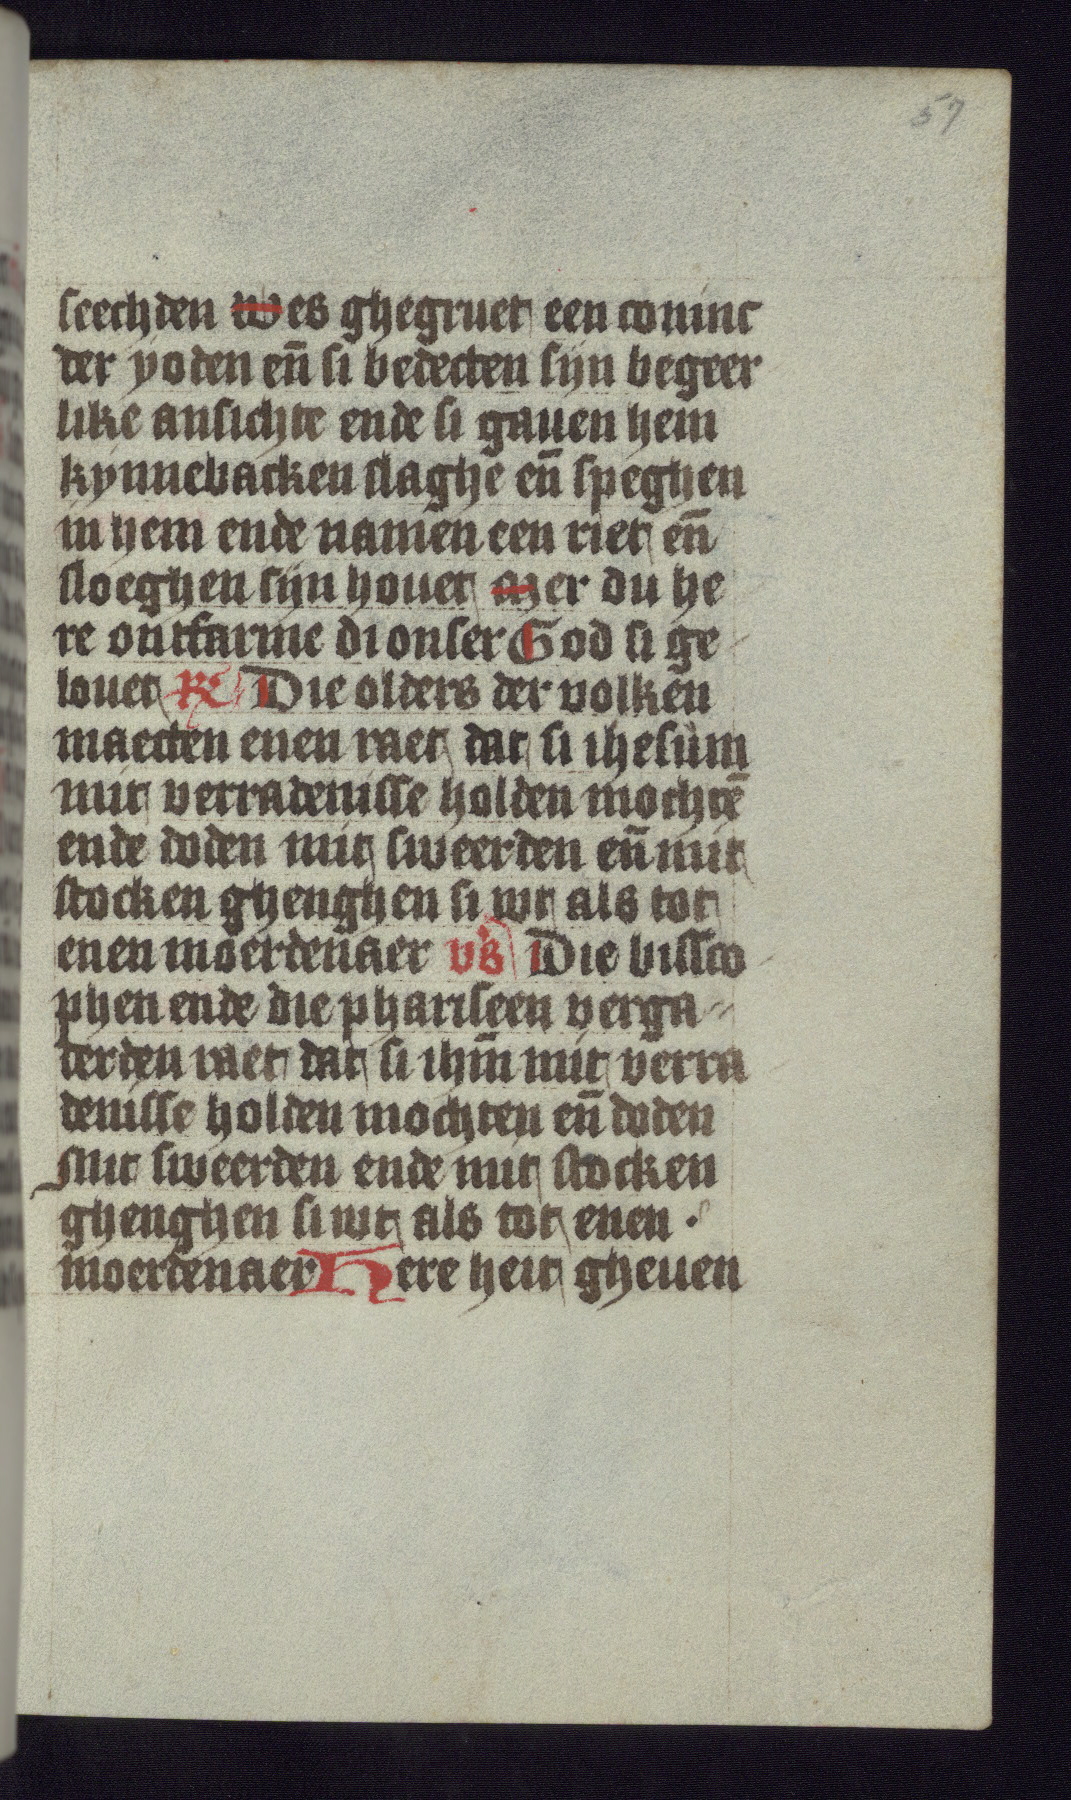 57
seechden Wes ghegruet een coninc
der yoden en̄ si bedecten sijn begeer
like ansichte ende si gauen hem
kynnebacken slaghē en̄ speghen
in hem ende namen een riet en̄
sloeghen sijn houet Mer du he
re ontfarme di onser God si ge
louet R Die olders der volken
maecten enen raet dat si ihesum
mit verradenisse holden mochtē
ende doden mit sweerden en̄ mit
stocken ghenghen si wt als tot
enen moerdenaer vs Die bissco
phen ende die phariseen verga
derden raet dat si ihm̄ mit verra
denisse holden mochten en̄ doden
Mit sweerden ende mit stocken
ghenghen si wt als tot enen
moerdenaer Here heit gheuen